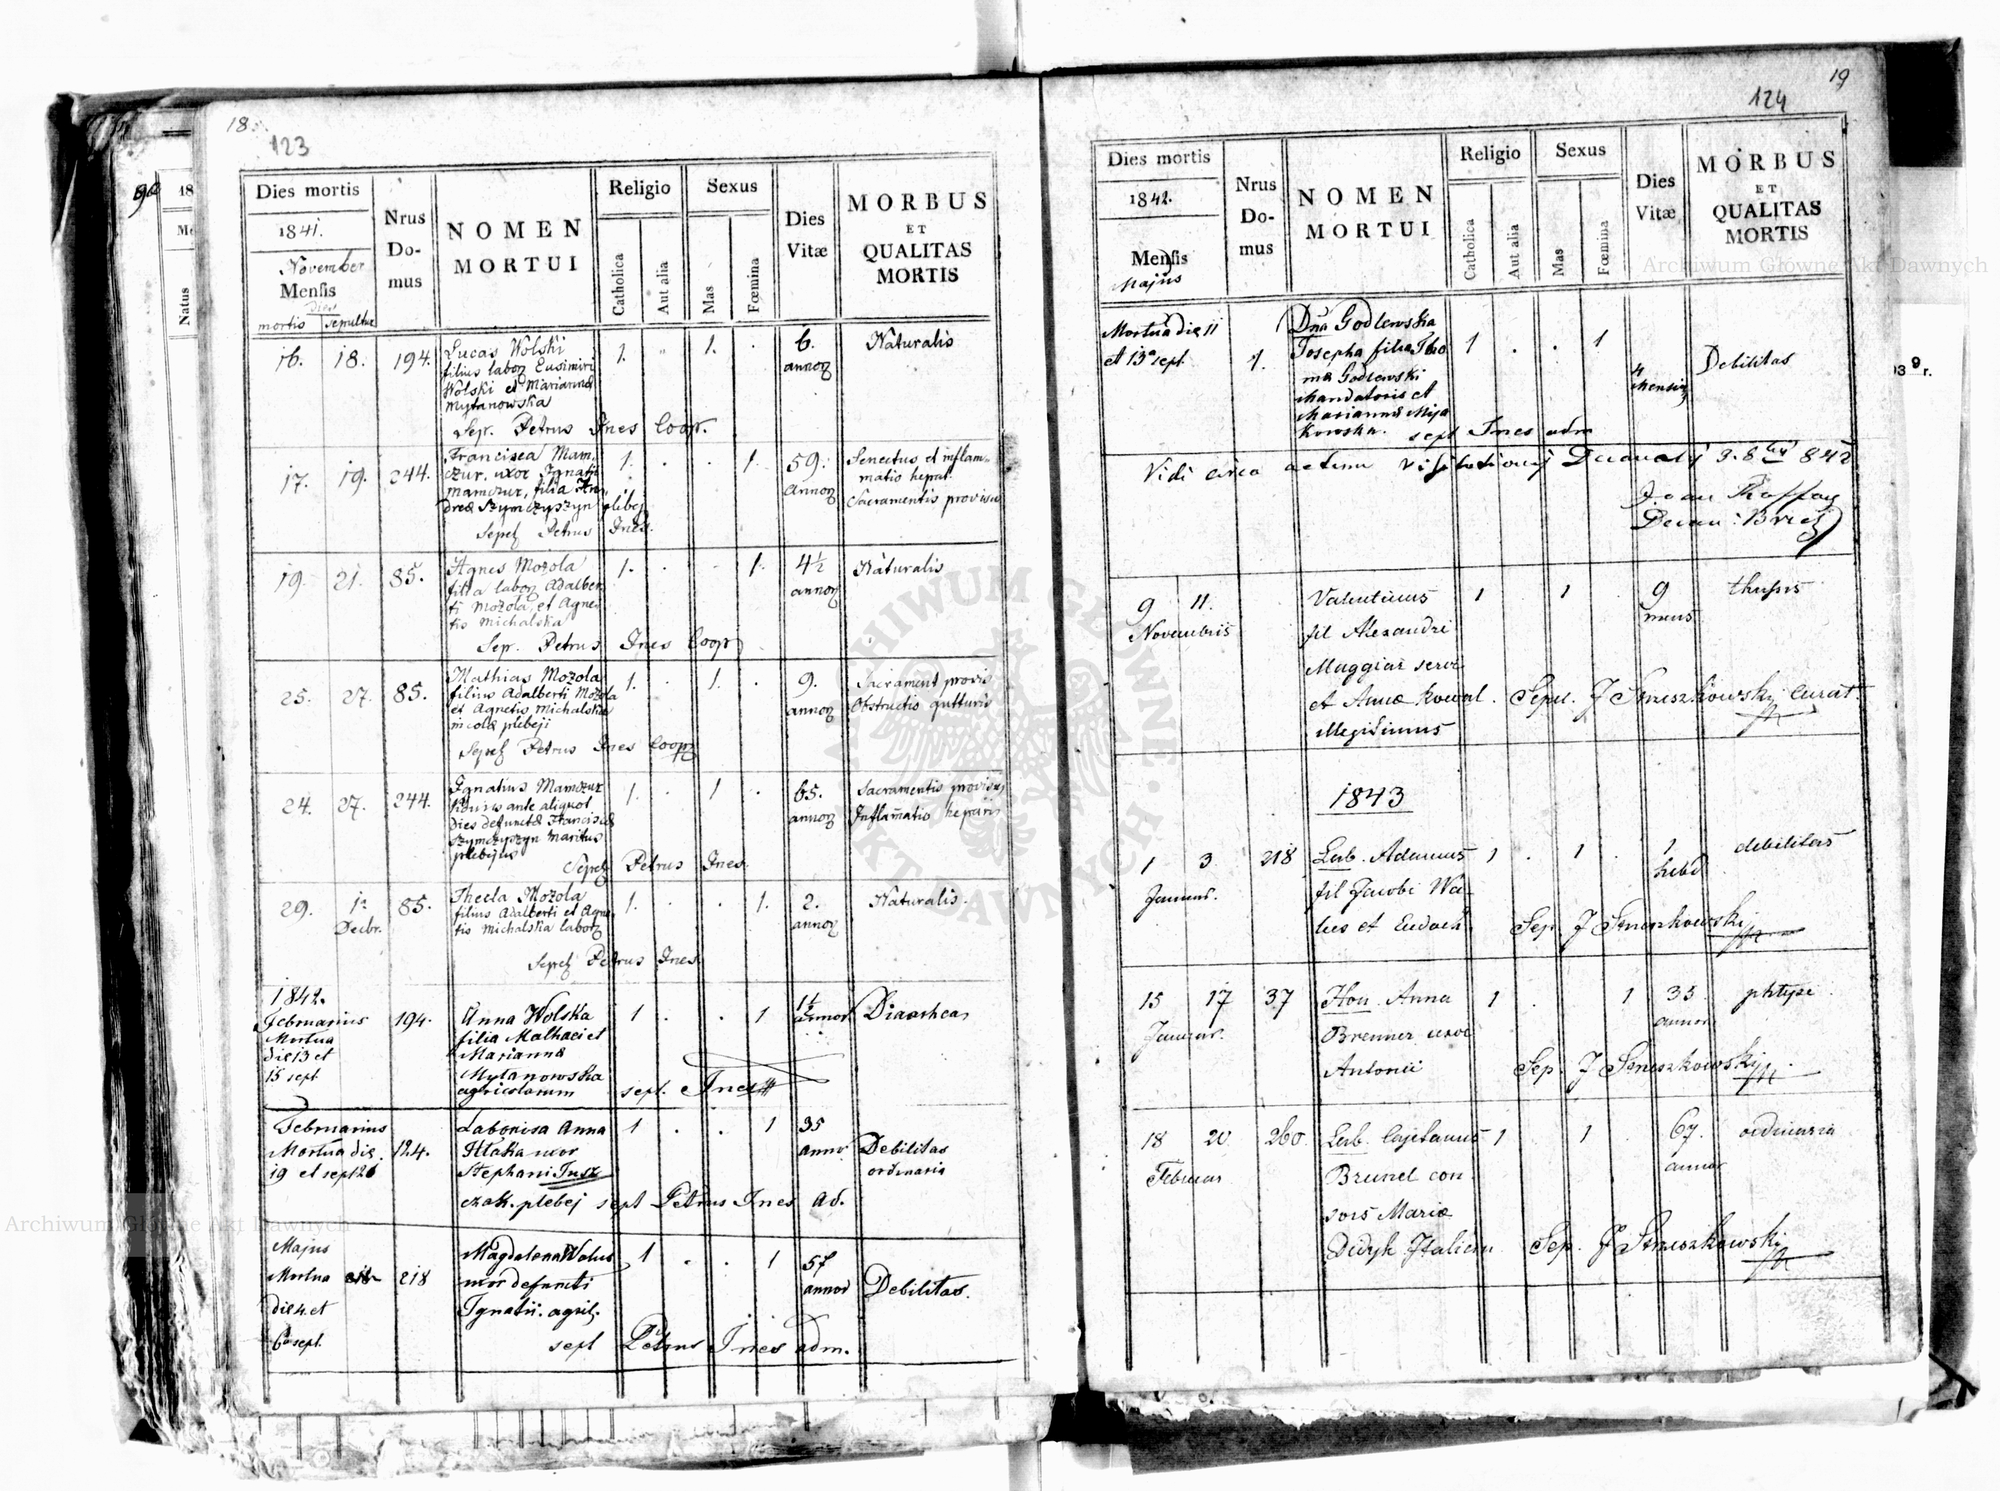 18.
123
Dies mortis
1841.
November
Mensis
dies
mortis sepultus
Nrus Domus
NOMEN MORTUI
Religio
Catholica
Aut alia
Sexus
Mas
Fœmina
Dies Vitæ
MORBUS
ET
QUALITAS
MORTIS
16. 18. 194. Lucas Wolski 1. " 1. . 6. Naturalis
filius labor annor
Wolski et Mariannæ
Mytanowska
Sep. Petrus Ines Coop.
17. 19. 244. Francisca Mam- 1. . . 1. 59. Senectus et inflam-
czur, uxor Ignatii annor matio hepat.
Mamczur, filia An- Sacramentis provisa
dreæ Szymczyszyn plebej
Sepel Petrus Ines.
19. 21. 85. Agnes Mozola 1. . . 1. 4½ Naturalis
filia labor Adalber annor
ti Mozola, et Agne-
tis Michalska
Sep. Petrus Ines Coop
25. 27. 85. Mathias Mozola 1. . 1. . 9. Sacrament provis
filius Adalberti Mozola annor Obstructio gutturis
et Agnetis Michalska
incolæ plebeji
Sepel Petrus Ines Coop
24. 27. 244. Ignatius Mamczur 1. . 1 . 65. Sacramentis provisus
viduus ante aliquot annor Inflamatio heparis
dies defunctæ Franciscæ
Szymczyszyn maritus
plebejus
Sepel Petrus Ines.
29. 1a 85. Thecla Mozola 1. . . 1. 2. Naturalis.
Decbr. filius Adalberti et Agne- annor
tis Michalska labor
Sepel Petrus Ines.
1842.
Februarius 194. Anna Wolska 1 . . 1 1½ Diaorhea
Mortua filia Malhaei et annor
die 13 et Mariannæ
15 sept. Mytanowska
agricolarum sept. Ines
Februarius Laborisa Anna 1 . . 1 35
Mortua die 124. Hłaka uxor annor Debilitas
19 et sept 21 Stephani Tusz ordinaria
czak. plebej sept Petrus Ines ad.
Majus Magdalena Walus 1 . . 1 57
Mortua 218 uxor defuncti annor Debilitas.
die 4 et Ignatii. agric.
6a sept. sept Petrus Ines adm.
19
124
Dies mortis
1842.
Mensis
Majus
Nrus Domus
NOMEN MORTUI
Religio
Catholica
Aut alia
Sexus
Mas
Fœmina
Dies Vitæ
MORBUS
ET
QUALITAS
MORTIS
Mortua die 11 1. Dna Godlewska 1 . . 1 4 Debilitas
et 13a sept. Josepha filia Tho mensium
mæ Godlewski
Mandatoris et
Mariannæ Mija
kowska. sept Ines adm
Vidi circa actum visitationis Decanalis
9 11. Valentinus 1 1 . 9 thusis
Novembris fil Alexandri mens
Muggiar
et Annæ Kowal. Sepel. J Strzeszkowski Curat
Illegitimus
1843
1 3 218 Lab. Adamus 1 . 1 . 1 debilitas
Januar. fil Jacobi Wa- hebd
lus et Eudoch Sep. J Strzeszkowski
15 17 37 Hon. Anna 1 . 1 35 phtyse
Januar. Brenner uxor annor
Antonii Sep. J Strzeszkowski
18 20 260 Lab. Cajetanus 1 1 . 67. ordinaria
Februar Brunel con- annor
sors Mariæ
Dudyk Sep. J Strzeszkowski
ARCHIWUM GŁÓWNE AKT DAWNYCH
Archiwum Główne Akt Dawnych
Archiwum Główne Akt Dawnych
Natus